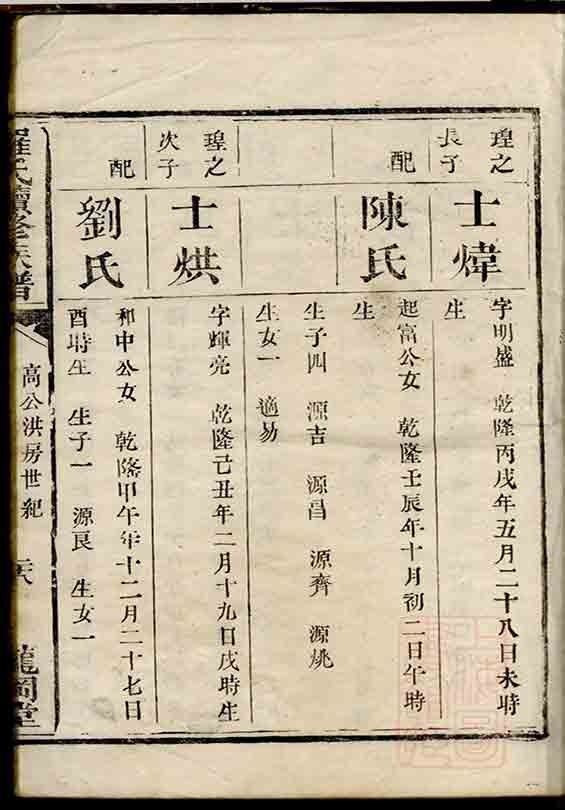 瑝之長子
士煒
字明盛 乾隆丙戌年五月二十八日未時
生
配
陳氏
起富公女 乾隆壬辰年十月初二日午時
生
生子四 源吉 源昌 源齊 源姚
生女一 適易
瑝之次子
士烘
字輝亮 乾隆己丑年二月十九日戌時生
配
劉氏
和中公女 乾隆甲午年十二月二十七日
酉時生 生子一 源良 生女一
羅氏續修族譜
高公洪房世紀
龍岡堂